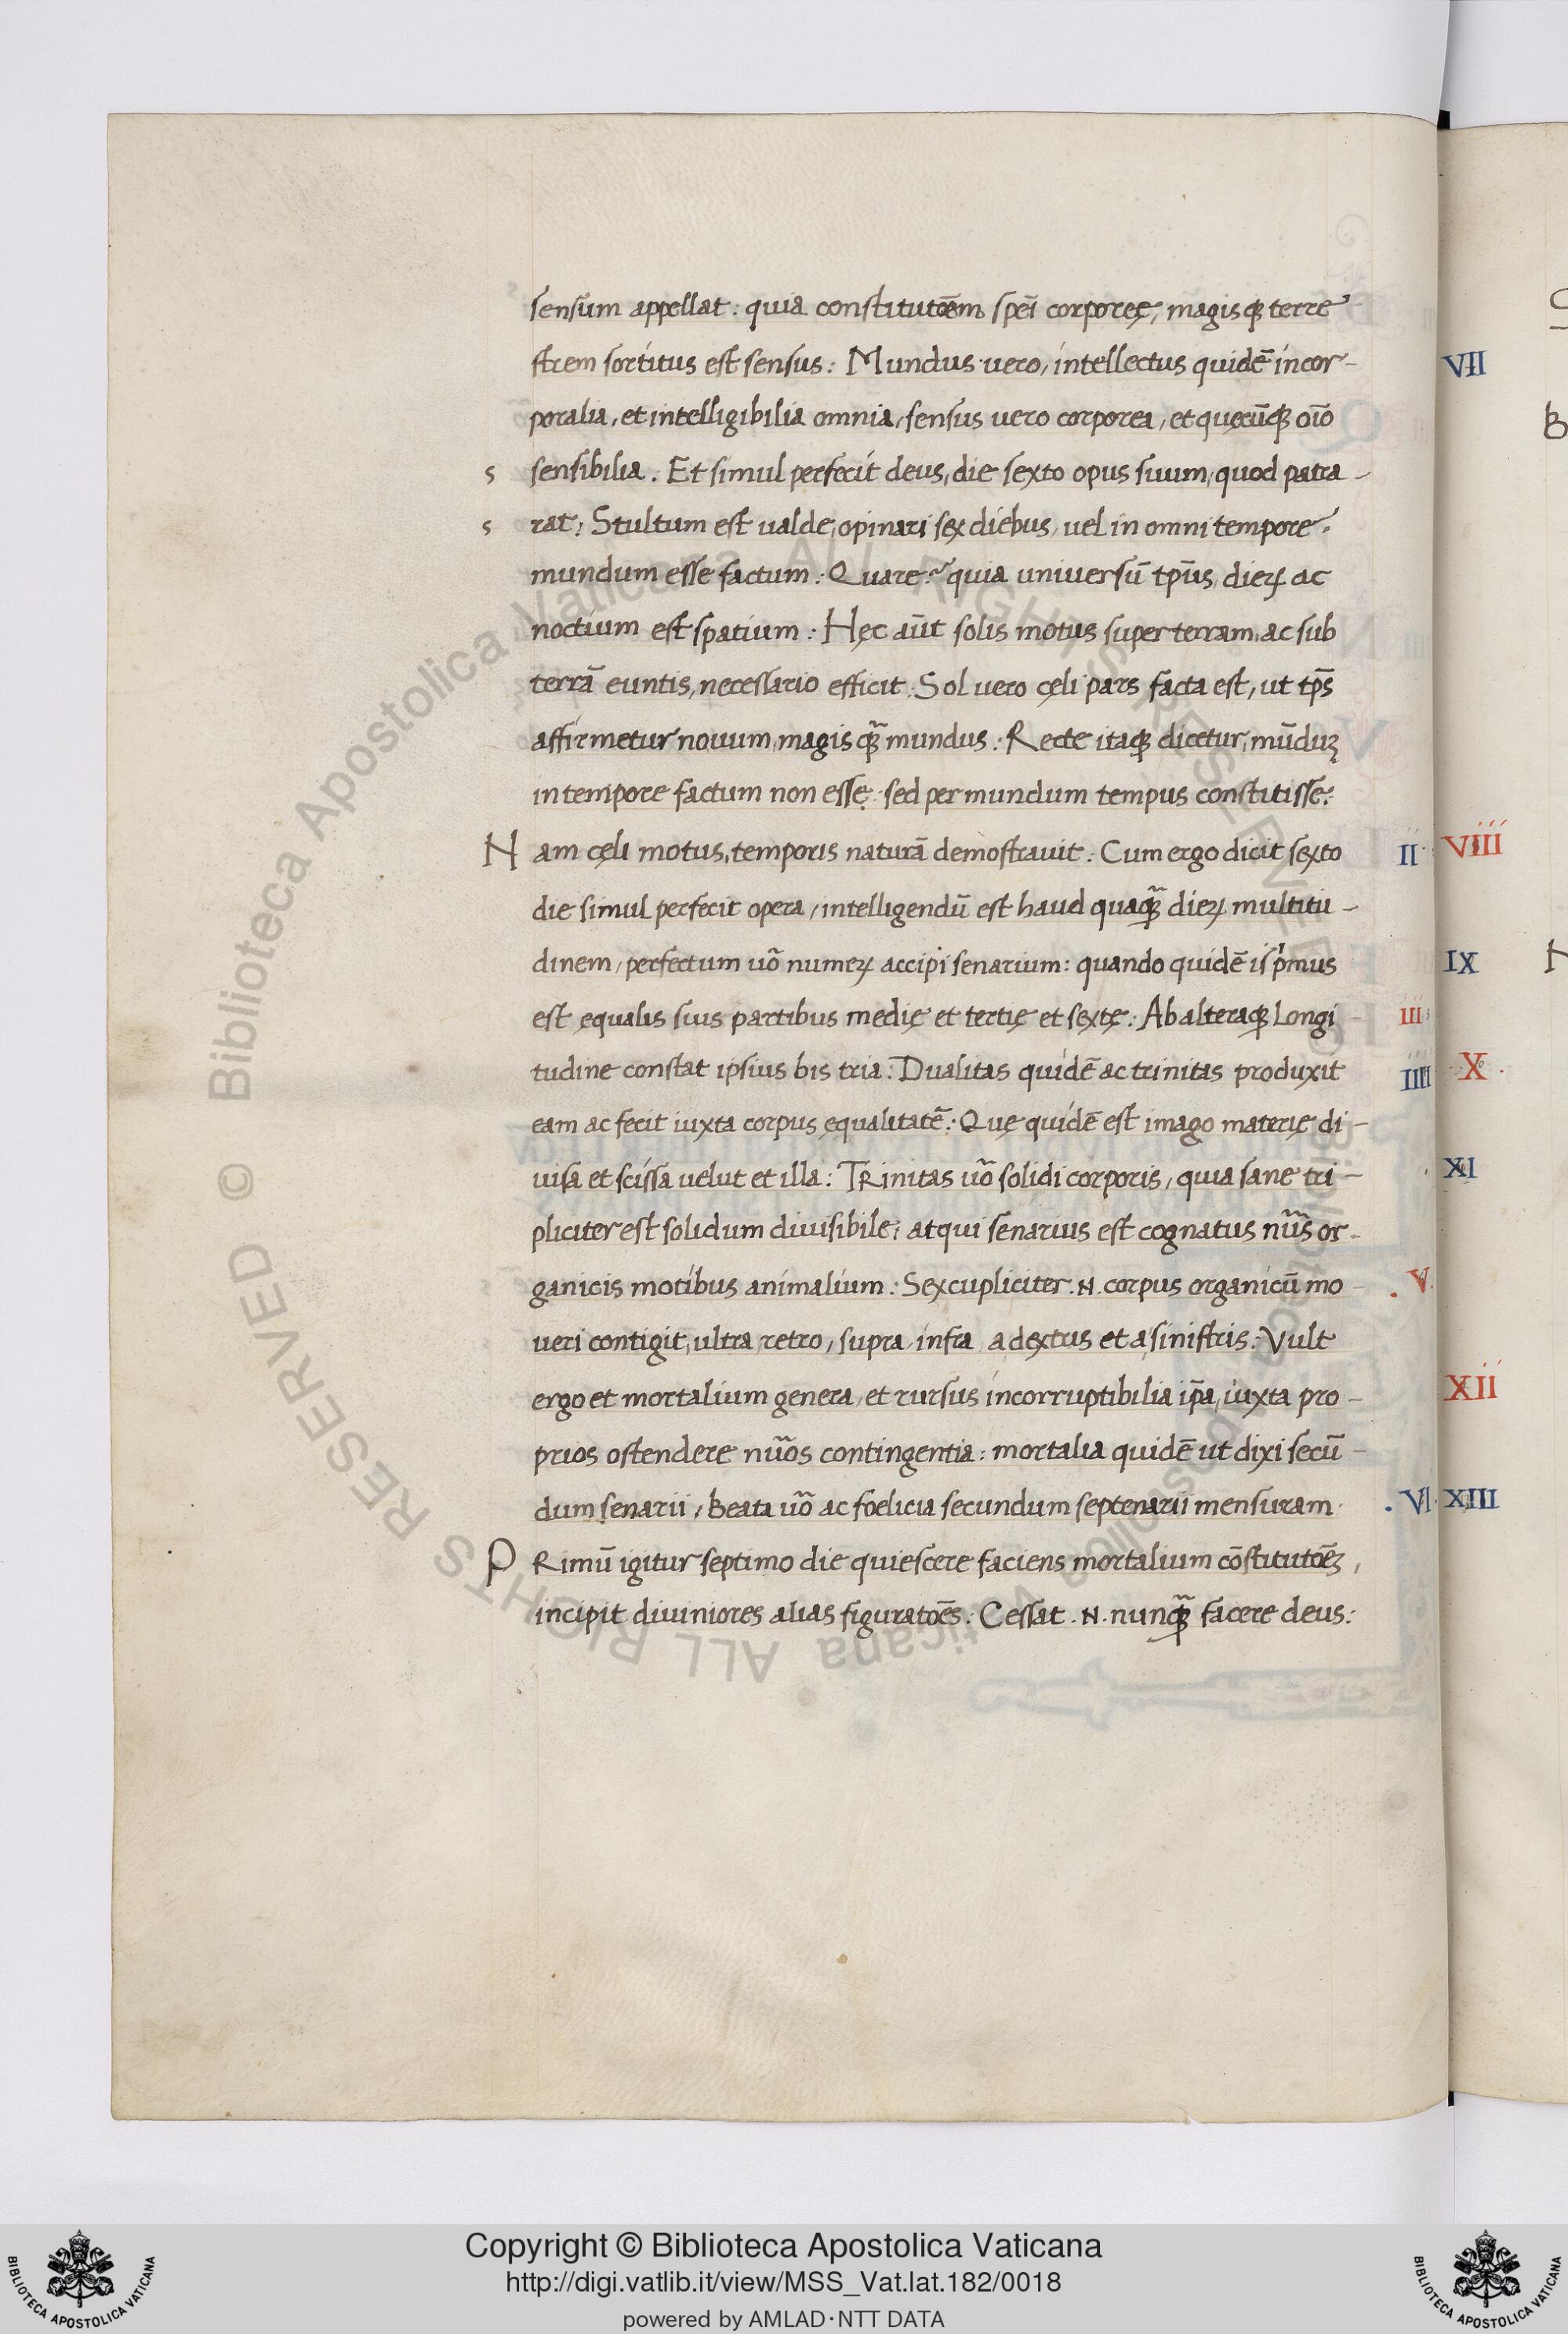 sensum appellat : quia constitutōem spēi corporeę, magisq̨ terre
strem sortitus est sensus : Mundus vero, intellectus quidē incor-
poralia, et intelligibilia omnia, sensus vero corporea, et quęcūq̨ oīo
s sensibilia . Et simul perfecit deus, die sexto opus suum, quod patra-
s rat : Stultum est ualde, opinari sex diebus, uel in omni tempore
mundum esse factum : Quare? quia universū tp̄us, dieꝝ ac
noctium est spatium : Hęc aūt solis motus super terram, ac sub
terrā euntis, necessario efficit : Sol vero cęli pars facta est, ut tp̄s
affirmetur novum, magis q̨̄ mundus : Recte itaq̨ dicetur, mūduꝫ
in tempore factum non essę : sed per mundum tempus constitisse :
N am cęli motus, temporis naturā demostravit : Cum ergo dicit sexto
die simul perfecit opera, intelligendū est haud quaq̨̄ dieꝝ multitu-
dinem, perfectum uō numeꝝ accipi senarium : quando quidē is p̍mus
est ęqualis suis partibus medię et tertię et sextę : Ab alteraq̨ Longi-
tudine constat ipsius bis tria : Dualitas quidē ac trinitas produxit
eam ac fecit iuxta corpus ęqualitatē : Quę quidē est imago materię di-
uisa et scissa uelut et illa : TRinitas uō solidi corporis, quia sane tri-
pliciter est solidum diuisibile, atqui senarius est cognatus nūs or-
ganicis motibus animalium : Sexcupliciter .N. corpus organicū mo-
ueri contigit, ultra, retro, supra, infra, a dextris et a sinistris : Vult
ergo et mortalium genera, et rursus incorruptibilia ip̄a, iuxta pro-
prios ostendere nūos contingentia : mortalia quidē ut dixi secū-
dum senarii, Beata uō ac foelicia secundum septenarii mensuram
P Rimū igitur septimo die quiescere faciens mortalium cōstitutōeꝫ,
incipit diuiniores alias figuratōes : Cessat .N. nunq̨̄ facere deus :
II
III
IIII
.V.
.VI.
VII
VIII
IX
X
XI
XII
XIII
© Biblioteca Apostolica Vaticana ALL RIGHTS RESERVED
© Biblioteca Apostolica Vaticana ALL RIGHTS RESERVED
Copyright © Biblioteca Apostolica Vaticana
http://digi.vatlib.it/view/MSS_Vat.lat.182/0018
powered by AMLAD·NTT DATA
BIBLIOTECA APOSTOLICA VATICANA
BIBLIOTECA APOSTOLICA VATICANA